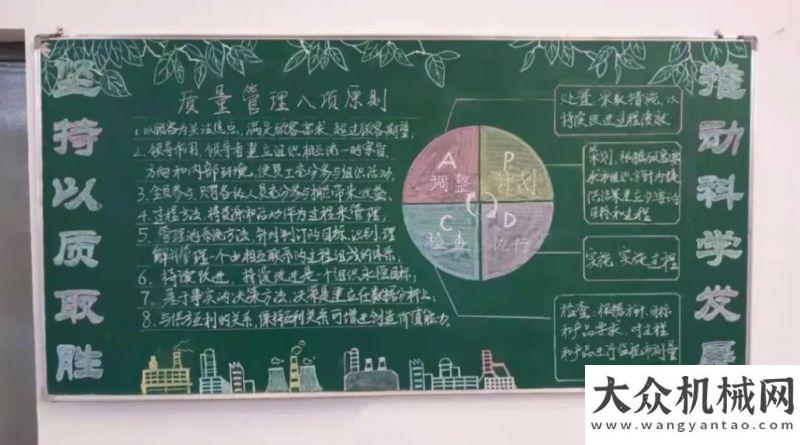 坚持以质取胜
质量管理八项原则
1.以顾客为关注焦点，满足顾客需求，超过顾客期望；
2.领导作用，领导者建立组织相互统一的宗旨、
方向和内部环境，使员工充分参与组织活动；
3.全员参与，只有各级人员充分参与才能带来收益；
4.过程方法，将资源和活动作为过程来管理；
5、管理的系统方法，针对制订的目标，识别、理
解并管理一个由相互联系的过程组成的体系；
6、持续改进，持续改进是一个组织永恒目标；
7、基于事实的决策方法，决策是建立在数据分析上；
8.与供方互利的关系，保持互利关系可增进创造价值能力。
A
调整
P
计划
C
检查
D
执行
处置、采取措施，以
持续改进过程绩效
策划、根据顾客要
求和组织方针为提
供结果建立必要的
目标和过程
实施、实施过程
检查：根据方针、目标
和产品要求，对过程
和产品进行监视和测量
推动科学发展
大众机械网
www.wangyantao.com